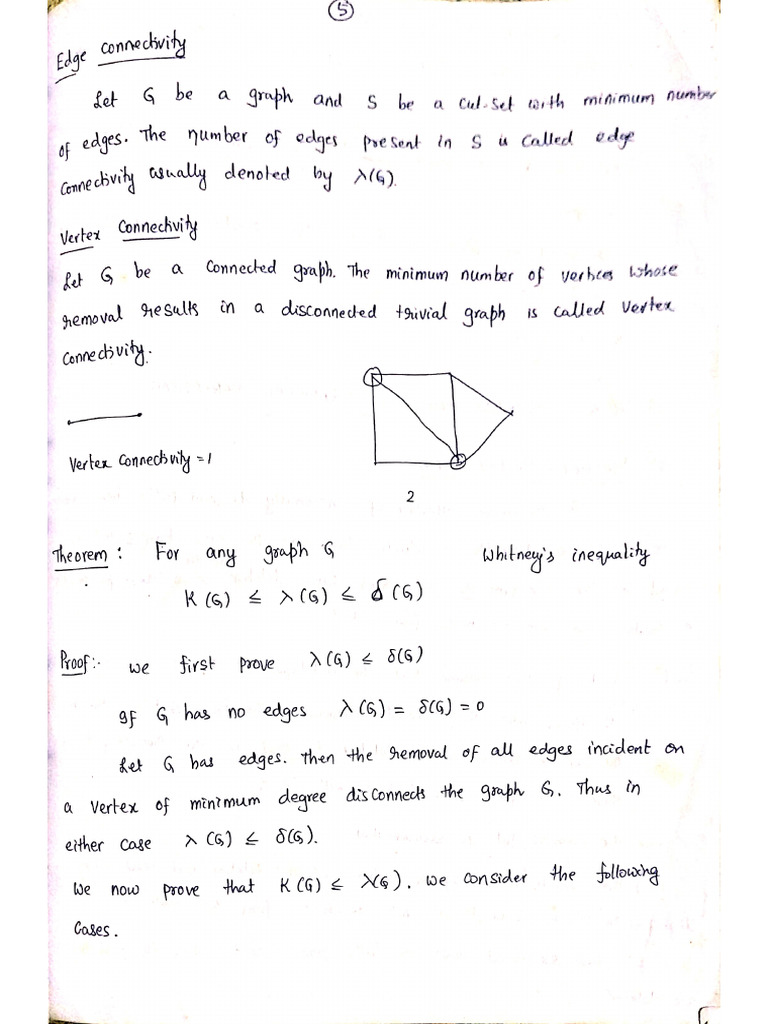 5
Edge Connectivity
Let G be a graph and S be a cut-set with minimum number
of edges. The number of edges present in S is called edge
Connectivity usually denoted by λ(G).
Vertex Connectivity
Let G be a Connected graph. The minimum number of vertices whose
removal results in a disconnected trivial graph is called vertex
Connectivity.
Vertex Connectivity = 1
2
Theorem : For any graph G Whitney's inequality
K(G) ≤ λ(G) ≤ δ(G)
Proof:- We first prove λ(G) ≤ δ(G)
If G has no edges λ(G) = δ(G) = 0
Let G has edges. Then the removal of all edges incident on
a vertex of minimum degree disconnects the graph G. Thus in
either case λ(G) ≤ δ(G).
We now prove that K(G) ≤ λ(G). We consider the following
Cases.